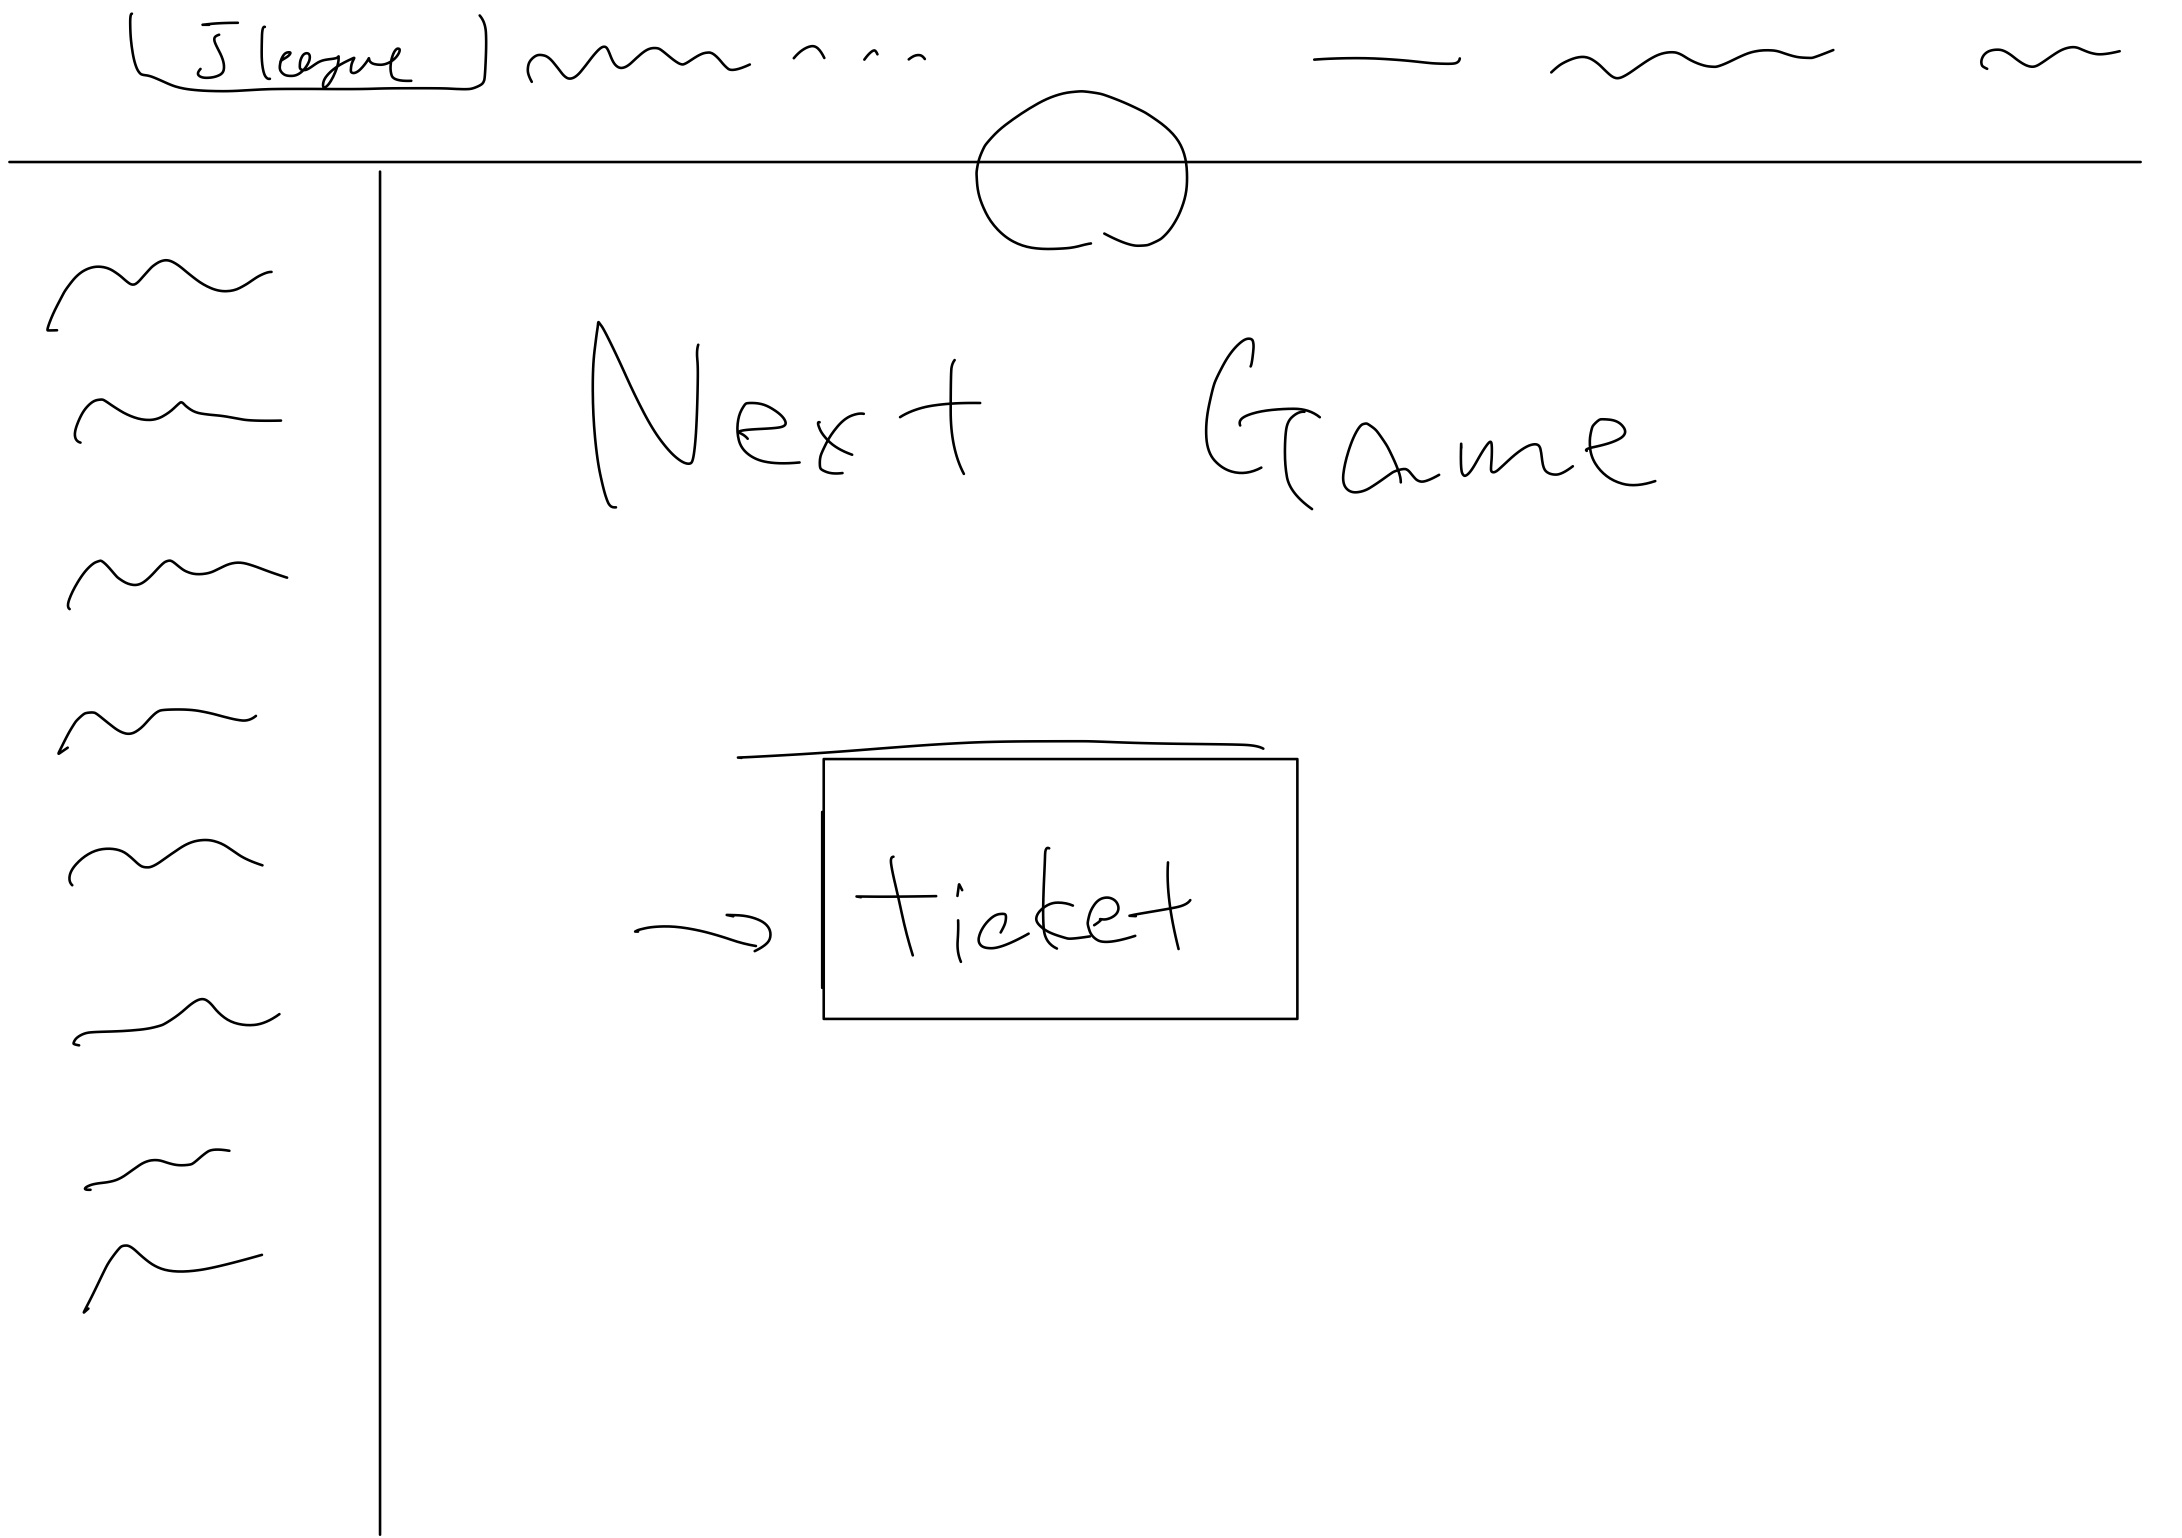 J league
Next Game
ticket